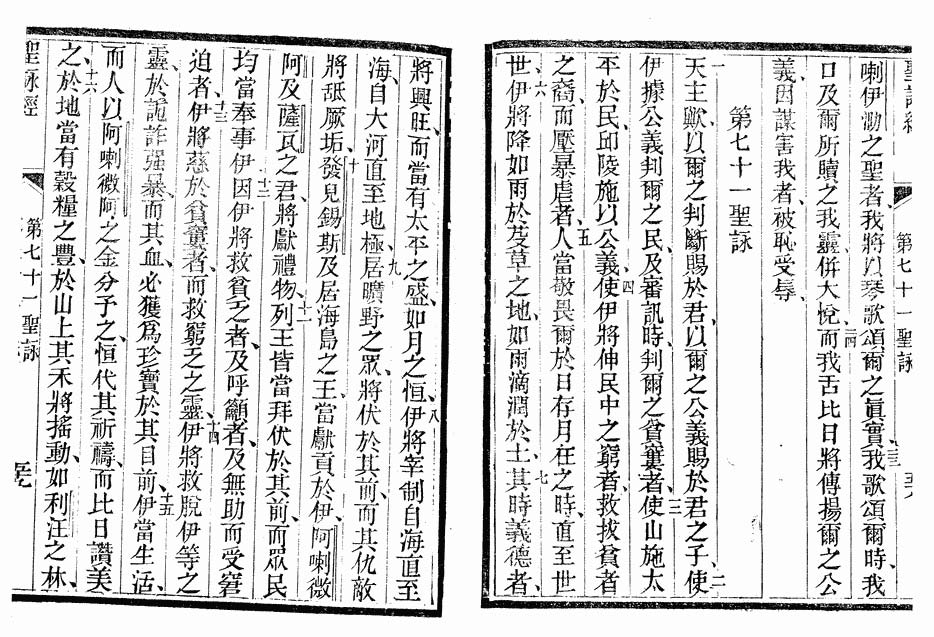 聖詠經 第七十一聖詠
喇伊泐之聖者、我將以琴歌頌爾之眞實、二三我歌頌爾時、我
口及爾所贖之我靈、併大悅、二四而我舌比日將傳揚爾之公
義、因謀害我者、被恥受辱、
第七十一聖詠
一天主歟、以爾之判斷賜於君、以爾之公義賜於君之子、二使
伊據公義判爾之民、及審訊時、判爾之貧窶者、三使山施太
平於民、邱陵施以公義、四使伊將伸民中之窮者、救拔貧者
之裔、而壓暴虐者、五人當敬畏爾於日存月在之時、直至世
世、六伊將降如雨於芟草之地、如雨滴潤於土、七其時義德者、
將興旺、而當有太平之盛、如月之恒、八伊將宰制自海直至
海、自大河直至地極、九居曠野之眾、將伏於其前、而其仇敵
將舐厥垢、十發兒錫斯及居海島之王、當獻貢於伊、阿喇微
阿及薩瓦之君、將獻禮物、十一列王皆當拜伏於其前、而眾民
均當奉事伊、十二因伊將救貧乏者、及呼籲者、及無助而受窘
迫者、十三伊將慈於貧窶者、而救窮乏之靈、十四伊將救脫伊等之
靈於詭詐强暴、而其血必獲爲珍寶於其目前、十五伊當生活、
而人以阿喇微阿之金分予之、恒代其祈禱、而比日讚美
之、十六於地當有穀糧之豐、於山上其禾將搖動、如利汪之林、
聖詠經 第七十一聖詠